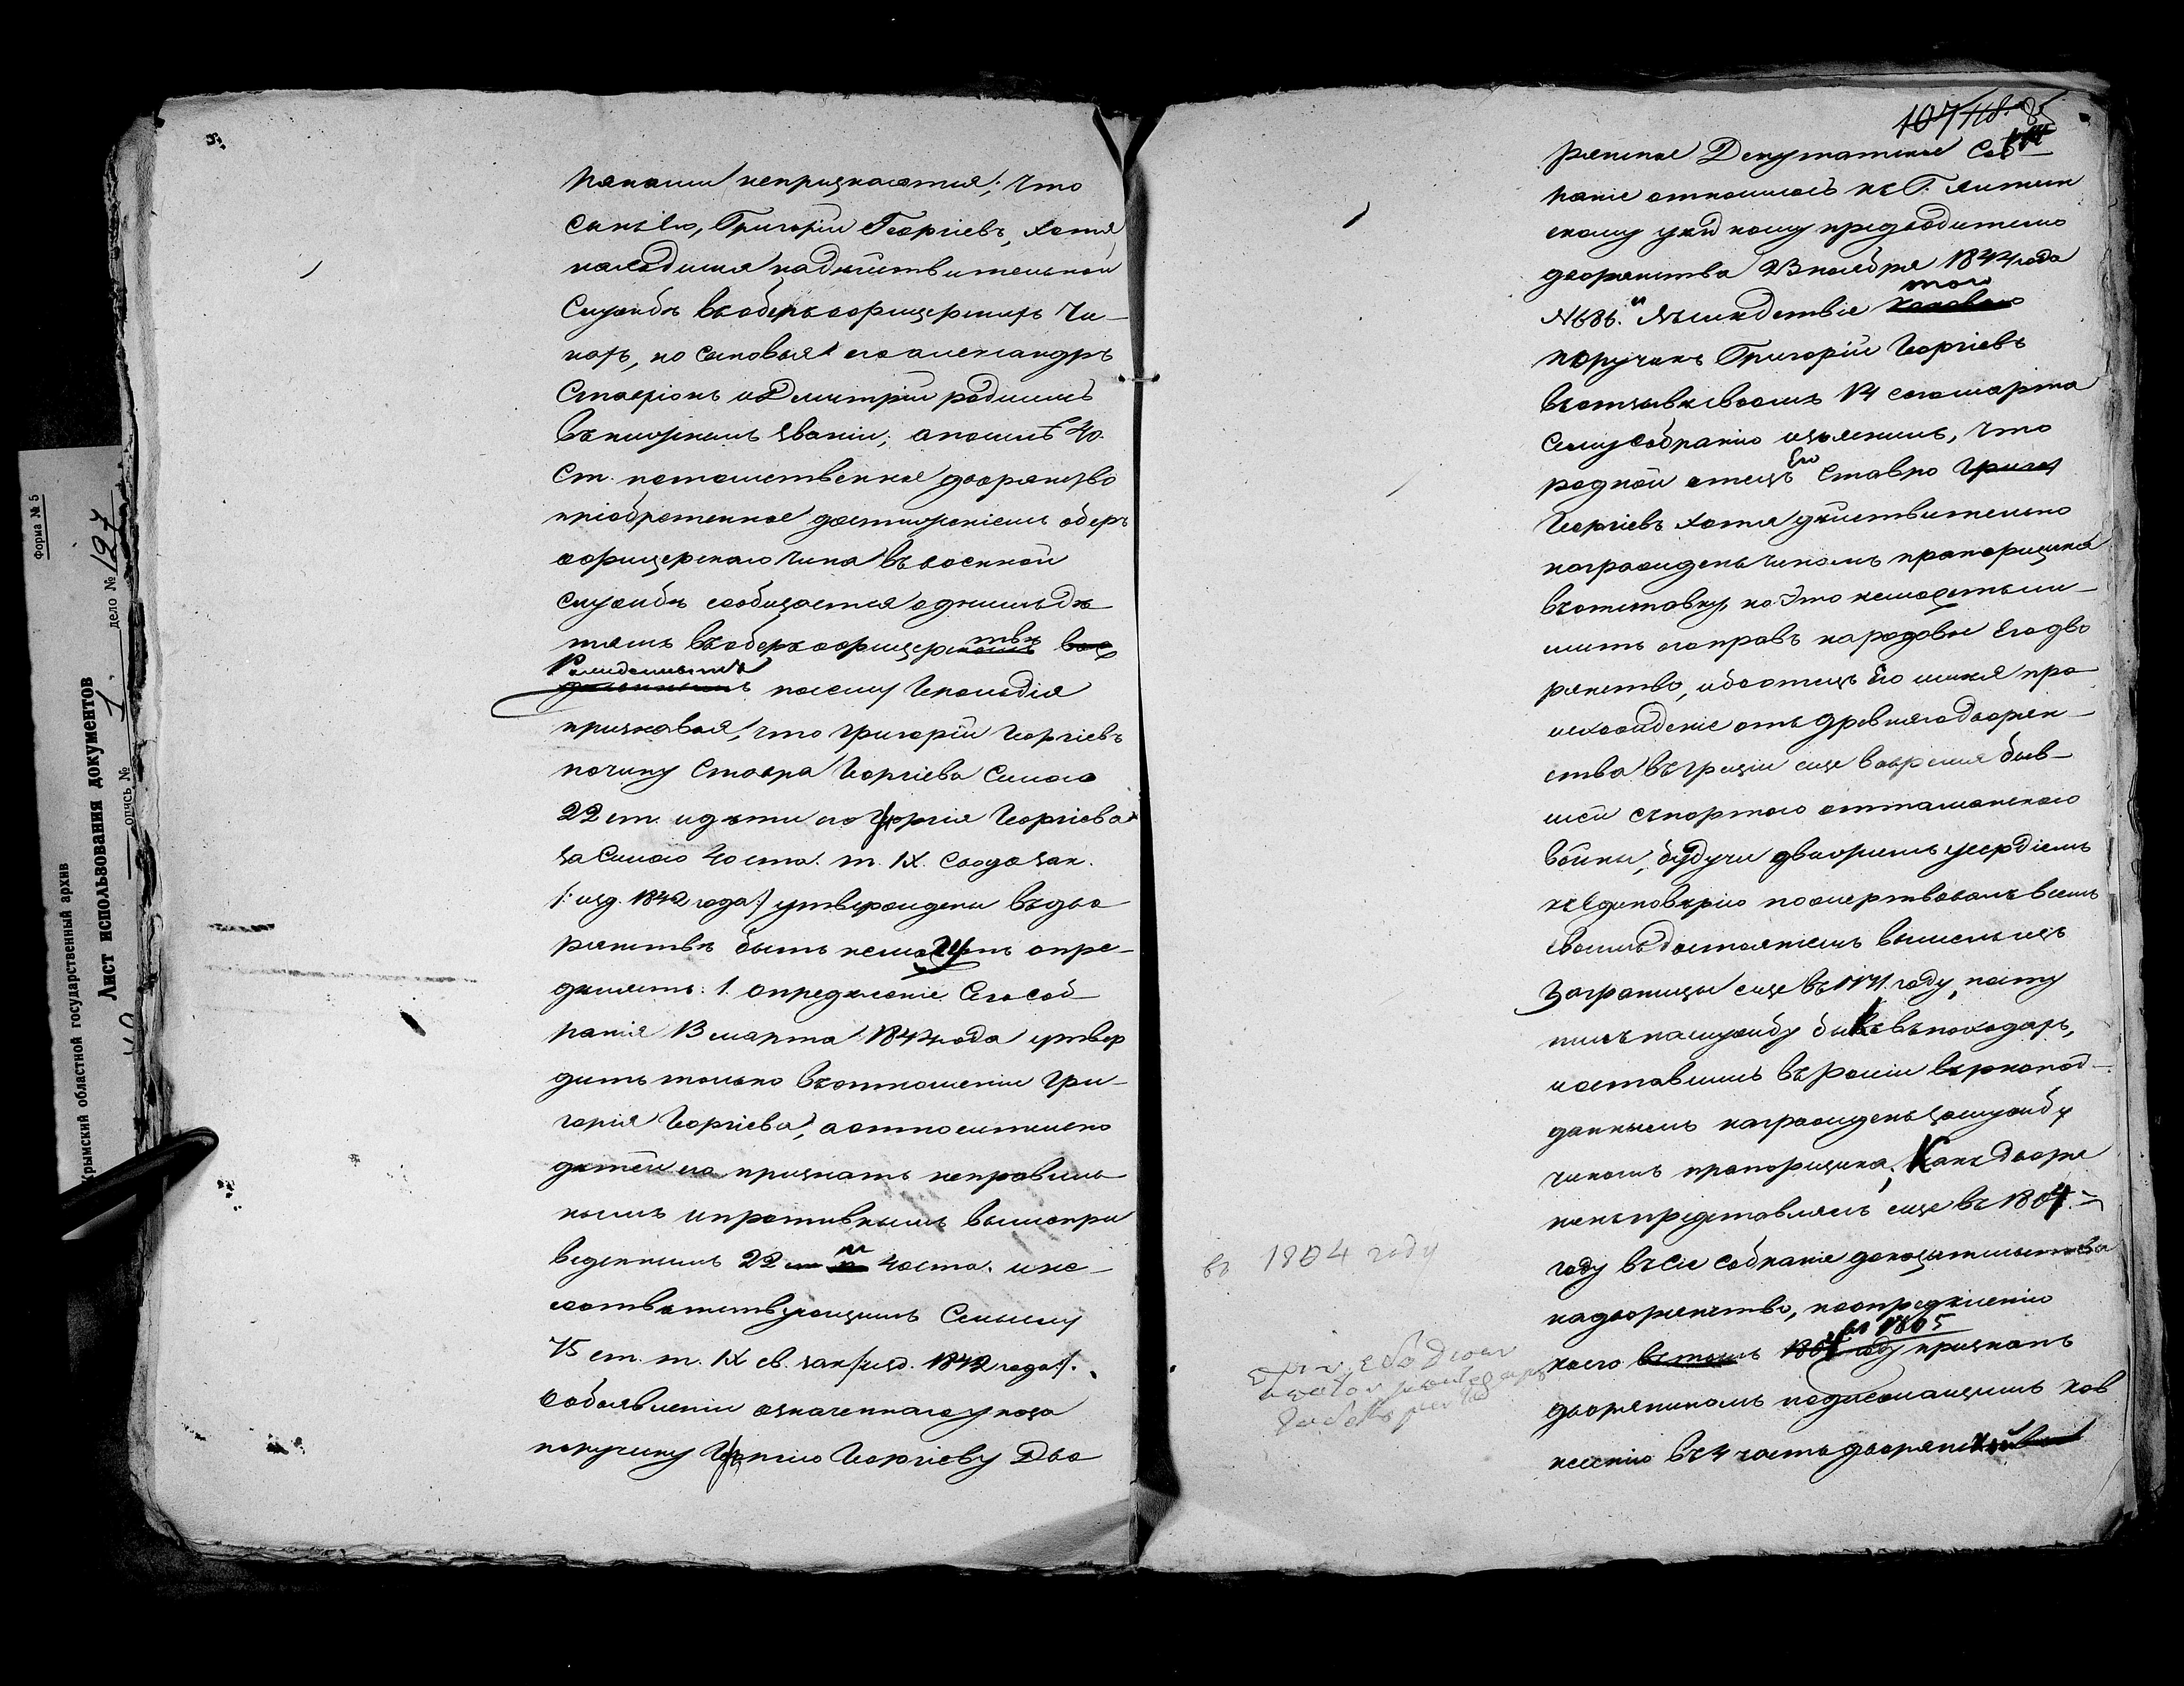 Форма № 5
Крымский областной государственный архив
Лист использования документов
опись № 1. дело № 127
рянами непризнаются; что
сынъ его, Григорій Георгіевъ, хотя
находился надѣйствительной
службѣ въ оберъ офицерскихъ чи-
нахъ, но сыновья его Александръ
и Дмитрій родились
въ званіи; а посилѣ 40.
ст. потомственное дворянство
пріобретенное достиженіемъ оберъ
офицерскаго чина въ военной
службѣ сообщается однимъ дѣ
тямъ въ оберъ офицерствѣ
рожденнымъ посему Непомѣдія
признавая, что Григорій Георгіевъ
почину Ставра Георгіева Силою
22 ст. идѣти его Георгія Георгіева
за Силою 40 ста. т. IX. Свода зак.
/: изд. 1842 года:/ утверждены въ дво
рянствѣ быть немогутъ опре-
дѣляетъ: 1. Опредѣленіе Сего Соб-
ранія 13 марта 1844 года утвер
дить только въ отношеніи Гри-
горія Георгіева, а относительно
дѣтей его признать неправиль
нымъ и противнымъ вышепри
веденнымъ 22 и 40 ста. и не-
соотвѣтствующимъ Сему
75 ст. т. IX св. зак /изд. 1842 года:/.
о объявленіи означеннаго указа
поручику Георгію Георгіеву Дво
107 118. 85
рянское Депутатское Соб-
раніе относилось къ Г. Ялтин
скому уѣздному предводителю
дворянства 23 ноября 1844 года
№ 686. Въ слѣдствіе того
поручикъ Григорій Георгіевъ
въ отзывѣ своемъ 14 сего марта
Сему Собранію изъяснилъ, что
родной отецъ Его Ставро
Георгіевъ хотя дѣйствительно
награжденъ чиномъ прапорщика
въ отставку, но это неможетъ ли-
шить его правъ народовое Его дво
рянство, ибо отецъ Его имѣя про
исхожденіе отъ древняго дворян-
ства въ Греціи еще во время быв-
шей съ портою оттаманскою
войны, будучи движимъ усердіемъ
къ Единовѣрію пожертвовалъ всемъ
своимъ достояніемъ вышелъ изъ
Заграницы еще въ 1771 году, посту
пилъ на службу былъ въ походахъ,
и оставшись въ Росіи вѣрнопод-
даннымъ награжденъ за службу
чиномъ прапорщика; Какъ дворя
нинъ представлялъ еще въ 1804.
году въ Сіе Собраніе доказательства
на дворянство, по опредѣленію
коего 1805 признанъ
дворяниномъ подлежащимъ ков
несенію въ 4 часть дворянской
въ 1804 году